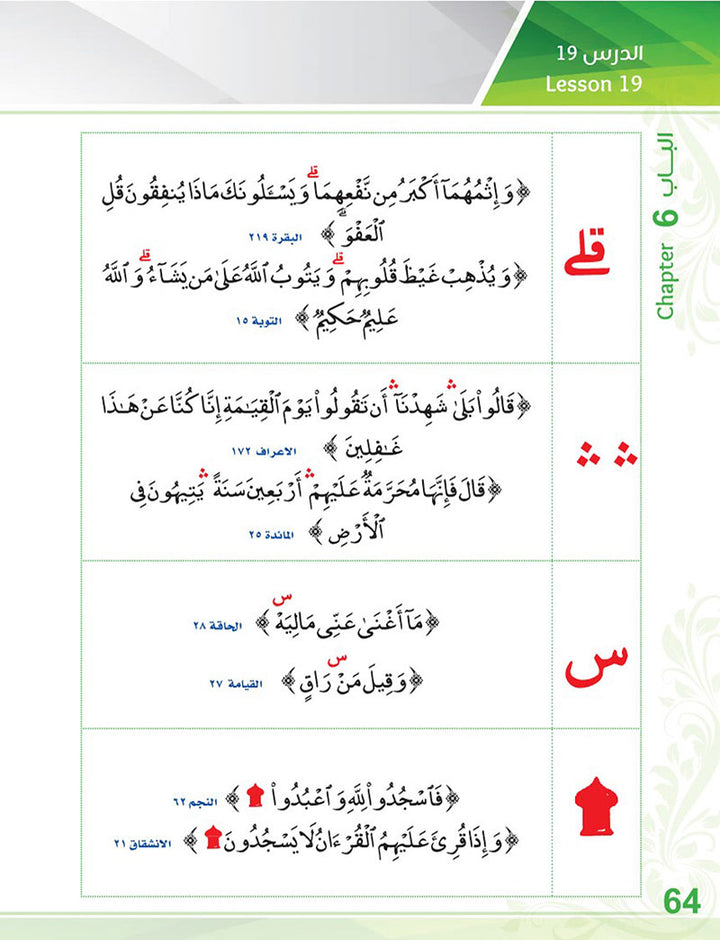 الدرس 19
Lesson 19
الباب 6 Chapter
قلے
﴿وَإِثْمُهُمَآ أَكْبَرُ مِن نَّفْعِهِمَا ۗ وَيَسْـَٔلُونَكَ مَاذَا يُنفِقُونَ قُلِ
ٱلْعَفْوَ ۗ﴾ البقرة ٢١٩
﴿وَيُذْهِبْ غَيْظَ قُلُوبِهِمْ ۗ وَيَتُوبُ ٱللَّهُ عَلَىٰ مَن يَشَآءُ ۗ وَٱللَّهُ
عَلِيمٌ حَكِيمٌ﴾ التوبة ١٥
ۛ ۛ
﴿قَالُوا۟ بَلَىٰ ۛ شَهِدْنَآ ۛ أَن تَقُولُوا۟ يَوْمَ ٱلْقِيَـٰمَةِ إِنَّا كُنَّا عَنْ هَـٰذَا
غَـٰفِلِينَ﴾ الاعراف ١٧٢
﴿قَالَ فَإِنَّهَا مُحَرَّمَةٌ عَلَيْهِمْ ۛ أَرْبَعِينَ سَنَةً ۛ يَتِيهُونَ فِى
ٱلْأَرْضِ﴾ المائدة ٢٥
س
﴿مَآ أَغْنَىٰ عَنِّى مَالِيَهْ ۜ﴾ الحاقة ٢٨
﴿وَقِيلَ مَنْ ۜ رَاقٍ﴾ القيامة ٢٧
۩
﴿فَٱسْجُدُوا۟ لِلَّهِ وَٱعْبُدُوا۟ ۩﴾ النجم ٦٢
﴿وَإِذَا قُرِئَ عَلَيْهِمُ ٱلْقُرْءَانُ لَا يَسْجُدُونَ ۩﴾ الانشقاق ٢١
64